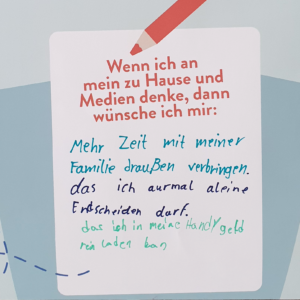 Wenn ich an
mein zu Hause und
Medien denke, dann
wünsche ich mir:
Mehr Zeit mit meiner
Familie draußen verbringen.
das ich aurmal aleine
Entscheiden darf.
das ich in meine Handy geld
rein laden kan